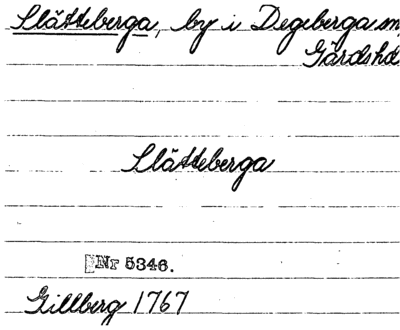 Slätteberga, by i Degeberga sn,
Gärdshd
Slätteberga
Nr 5346.
Gillberg 1767